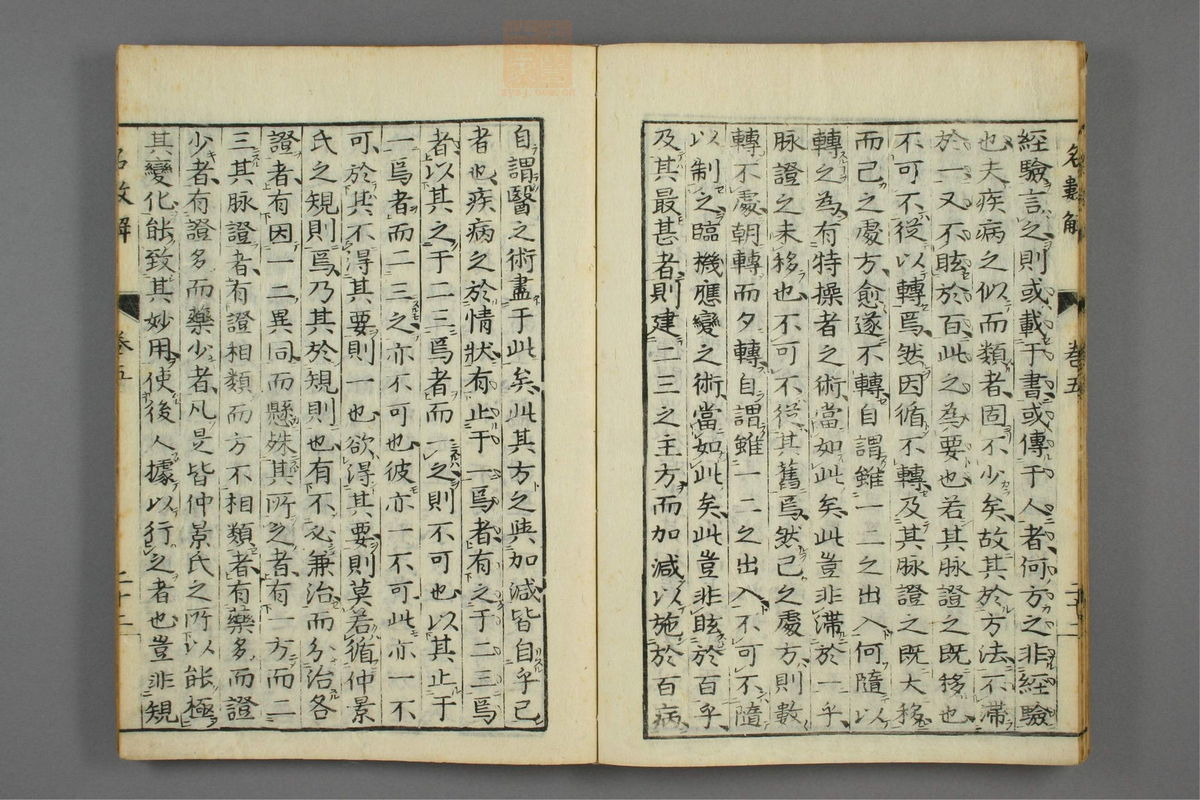 名數解
卷五
二十二
經驗言之則或載于書或傳于人者何方之非經驗
也夫疾病之似而類者固不少矣故其於方法不滯
於一又不眩於百此之為要也若其脉證之既移也
不可不從以轉焉然因循不轉及其脉證之既大移
而己之處方愈遂不轉自謂雖一二之出入何隨以
轉之為有特操者之術當如此矣此豈非滯於一乎
脉證之未移也不可不從其舊焉然己之處方則數
轉不處朝轉而夕轉自謂雖一二之出入不可不隨
以制之臨機應變之術當如此矣此豈非眩於百乎
及其最甚者則建二三之主方而加減以施於百病
自謂醫之術盡于此矣此其方之與加減皆自乎己
者也疾病之於情狀有止于一焉者有之于二三焉
者以其之于二三焉者而一之則不可也以其止于
一焉者而二三之亦不可也彼亦一不可此亦一不
可於其不得其要則一也欲得其要則莫若循仲景
氏之規則焉乃其於規則也有不必兼治而分治各
證者有因一二異同而懸殊其所之者有一方而二
三其脉證者有證相類而方不相類者有藥多而證
少者有證多而藥少者凡是皆仲景氏之所以能極
其變化能致其妙用使後人據以行之者也豈非規
名數解
卷五
二十二